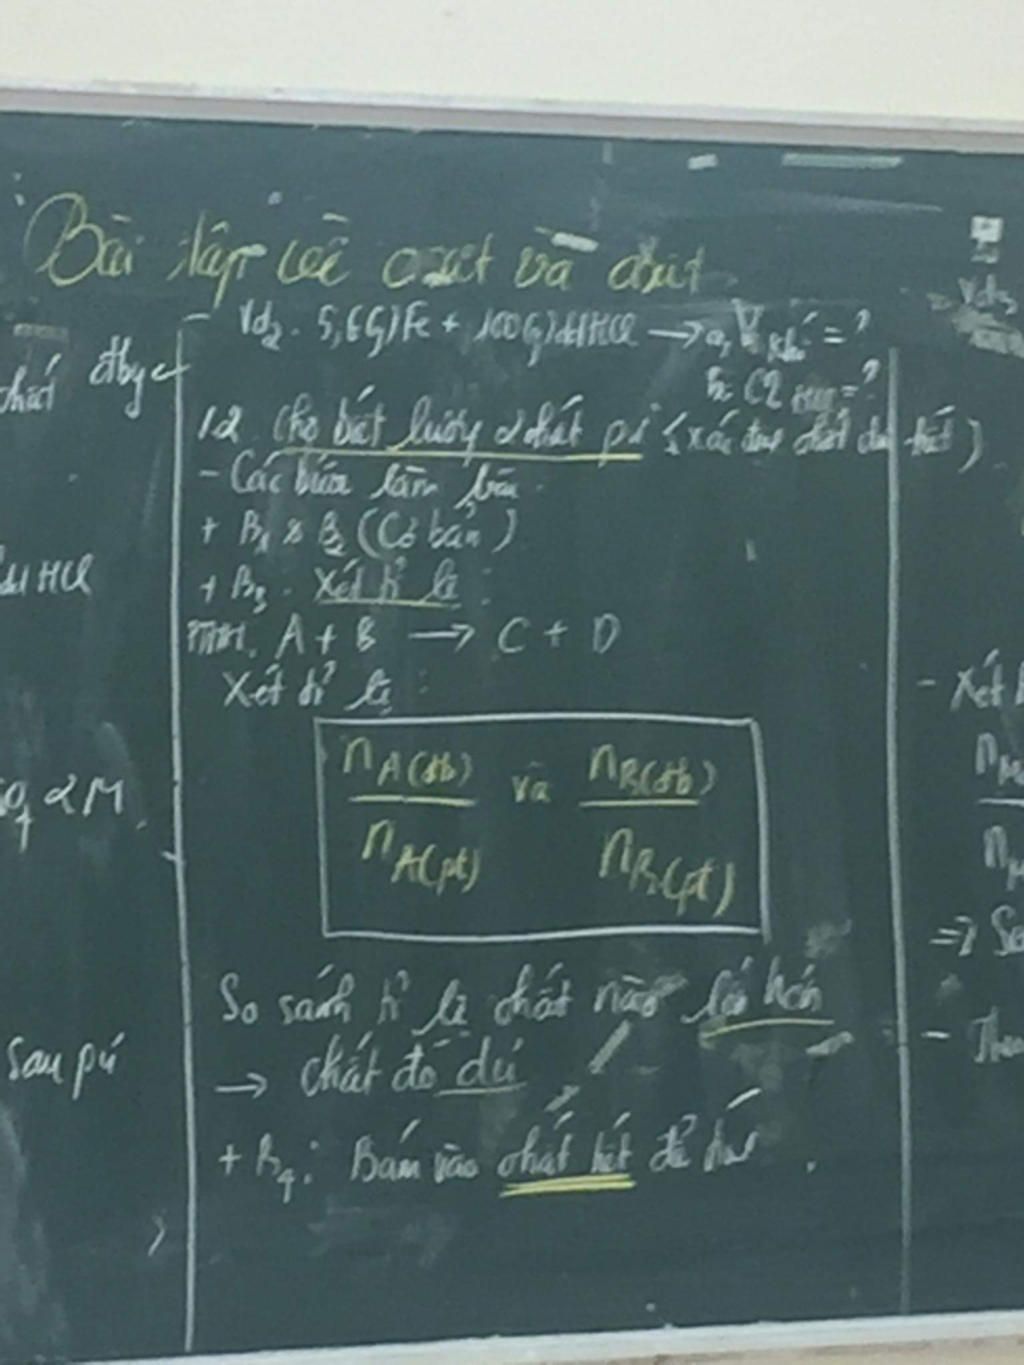 Bài tập về oxit và axit
chất
đbg
dd HCl
2M
sau pứ
- Vd2. 5,6(g) Fe + 100(g) dd HCl → a, V khí = ?
b. C% HCl = ?
1.2 Cho biết lượng 2 chất pứ (xác định chất dư hết)
- Các bước làm bài
+ B1 & B2 (Cơ bản)
+ B3. Xét tỉ lệ :
PTHH. A + B → C + D
Xét tỉ lệ :
n A(đb) và n B(đb)
n A(pt) n B(pt)
So sánh tỉ lệ chất nào lớn hơn
→ chất đó dư
+ B4: Bám vào chất hết để tính .
Vd3
- Xét
n
n
⇒ So
- Theo